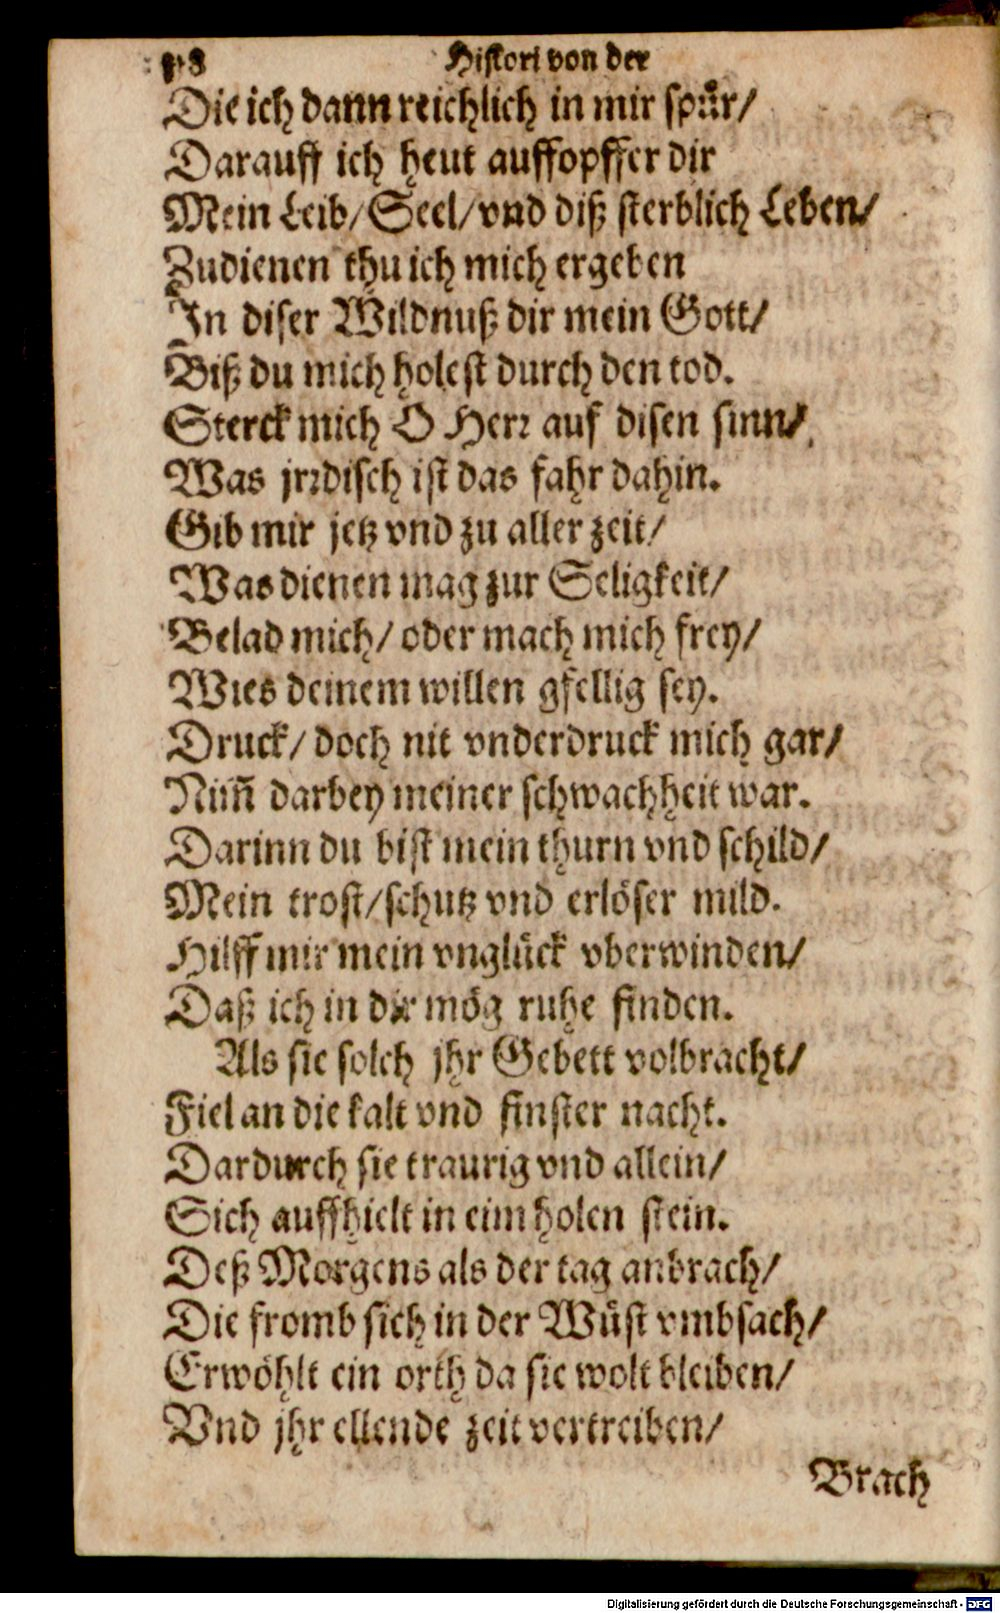 Histori von der
Die ich dann reichlich in mir spuͤr/
Darauff ich heut auffopffer dir
Mein Leib/ Seel/ vnd diß sterblich Leben/
Zudienen thu ich mich ergeben
In diser Wildnuß dir mein Gott/
Biß du mich holest durch den tod.
Sterck mich O Herr auf disen sinn/
Was jrrdisch ist das fahr dahin.
Gib mir jetz vnd zu aller zeit/
Was dienen mag zur Seligkeit/
Belad mich/ oder mach mich frey/
Wies deinem willen gfellig sey.
Druck/ doch nit vnderdruck mich gar/
Nim̃ darbey meiner schwachheit war.
Darinn du bist mein thurn vnd schild/
Mein trost/ schutz vnd erlöser mild.
Hilff mir mein vnglück vberwinden/
Daß ich in dir mög ruhe finden.
Als sie solch jhr Gebett volbracht/
Fiel an die kalt vnd finster nacht.
Dardurch sie traurig vnd allein/
Sich auffhielt in eim holen stein.
Deß Morgens als der tag anbrach/
Die fromb sich in der Wüst vmbsach/
Erwöhlt ein orth da sie wolt bleiben/
Vnd jhr ellende zeit vertreiben/
Brach
Digitalisierung gefördert durch die Deutsche Forschungsgemeinschaft - DFG